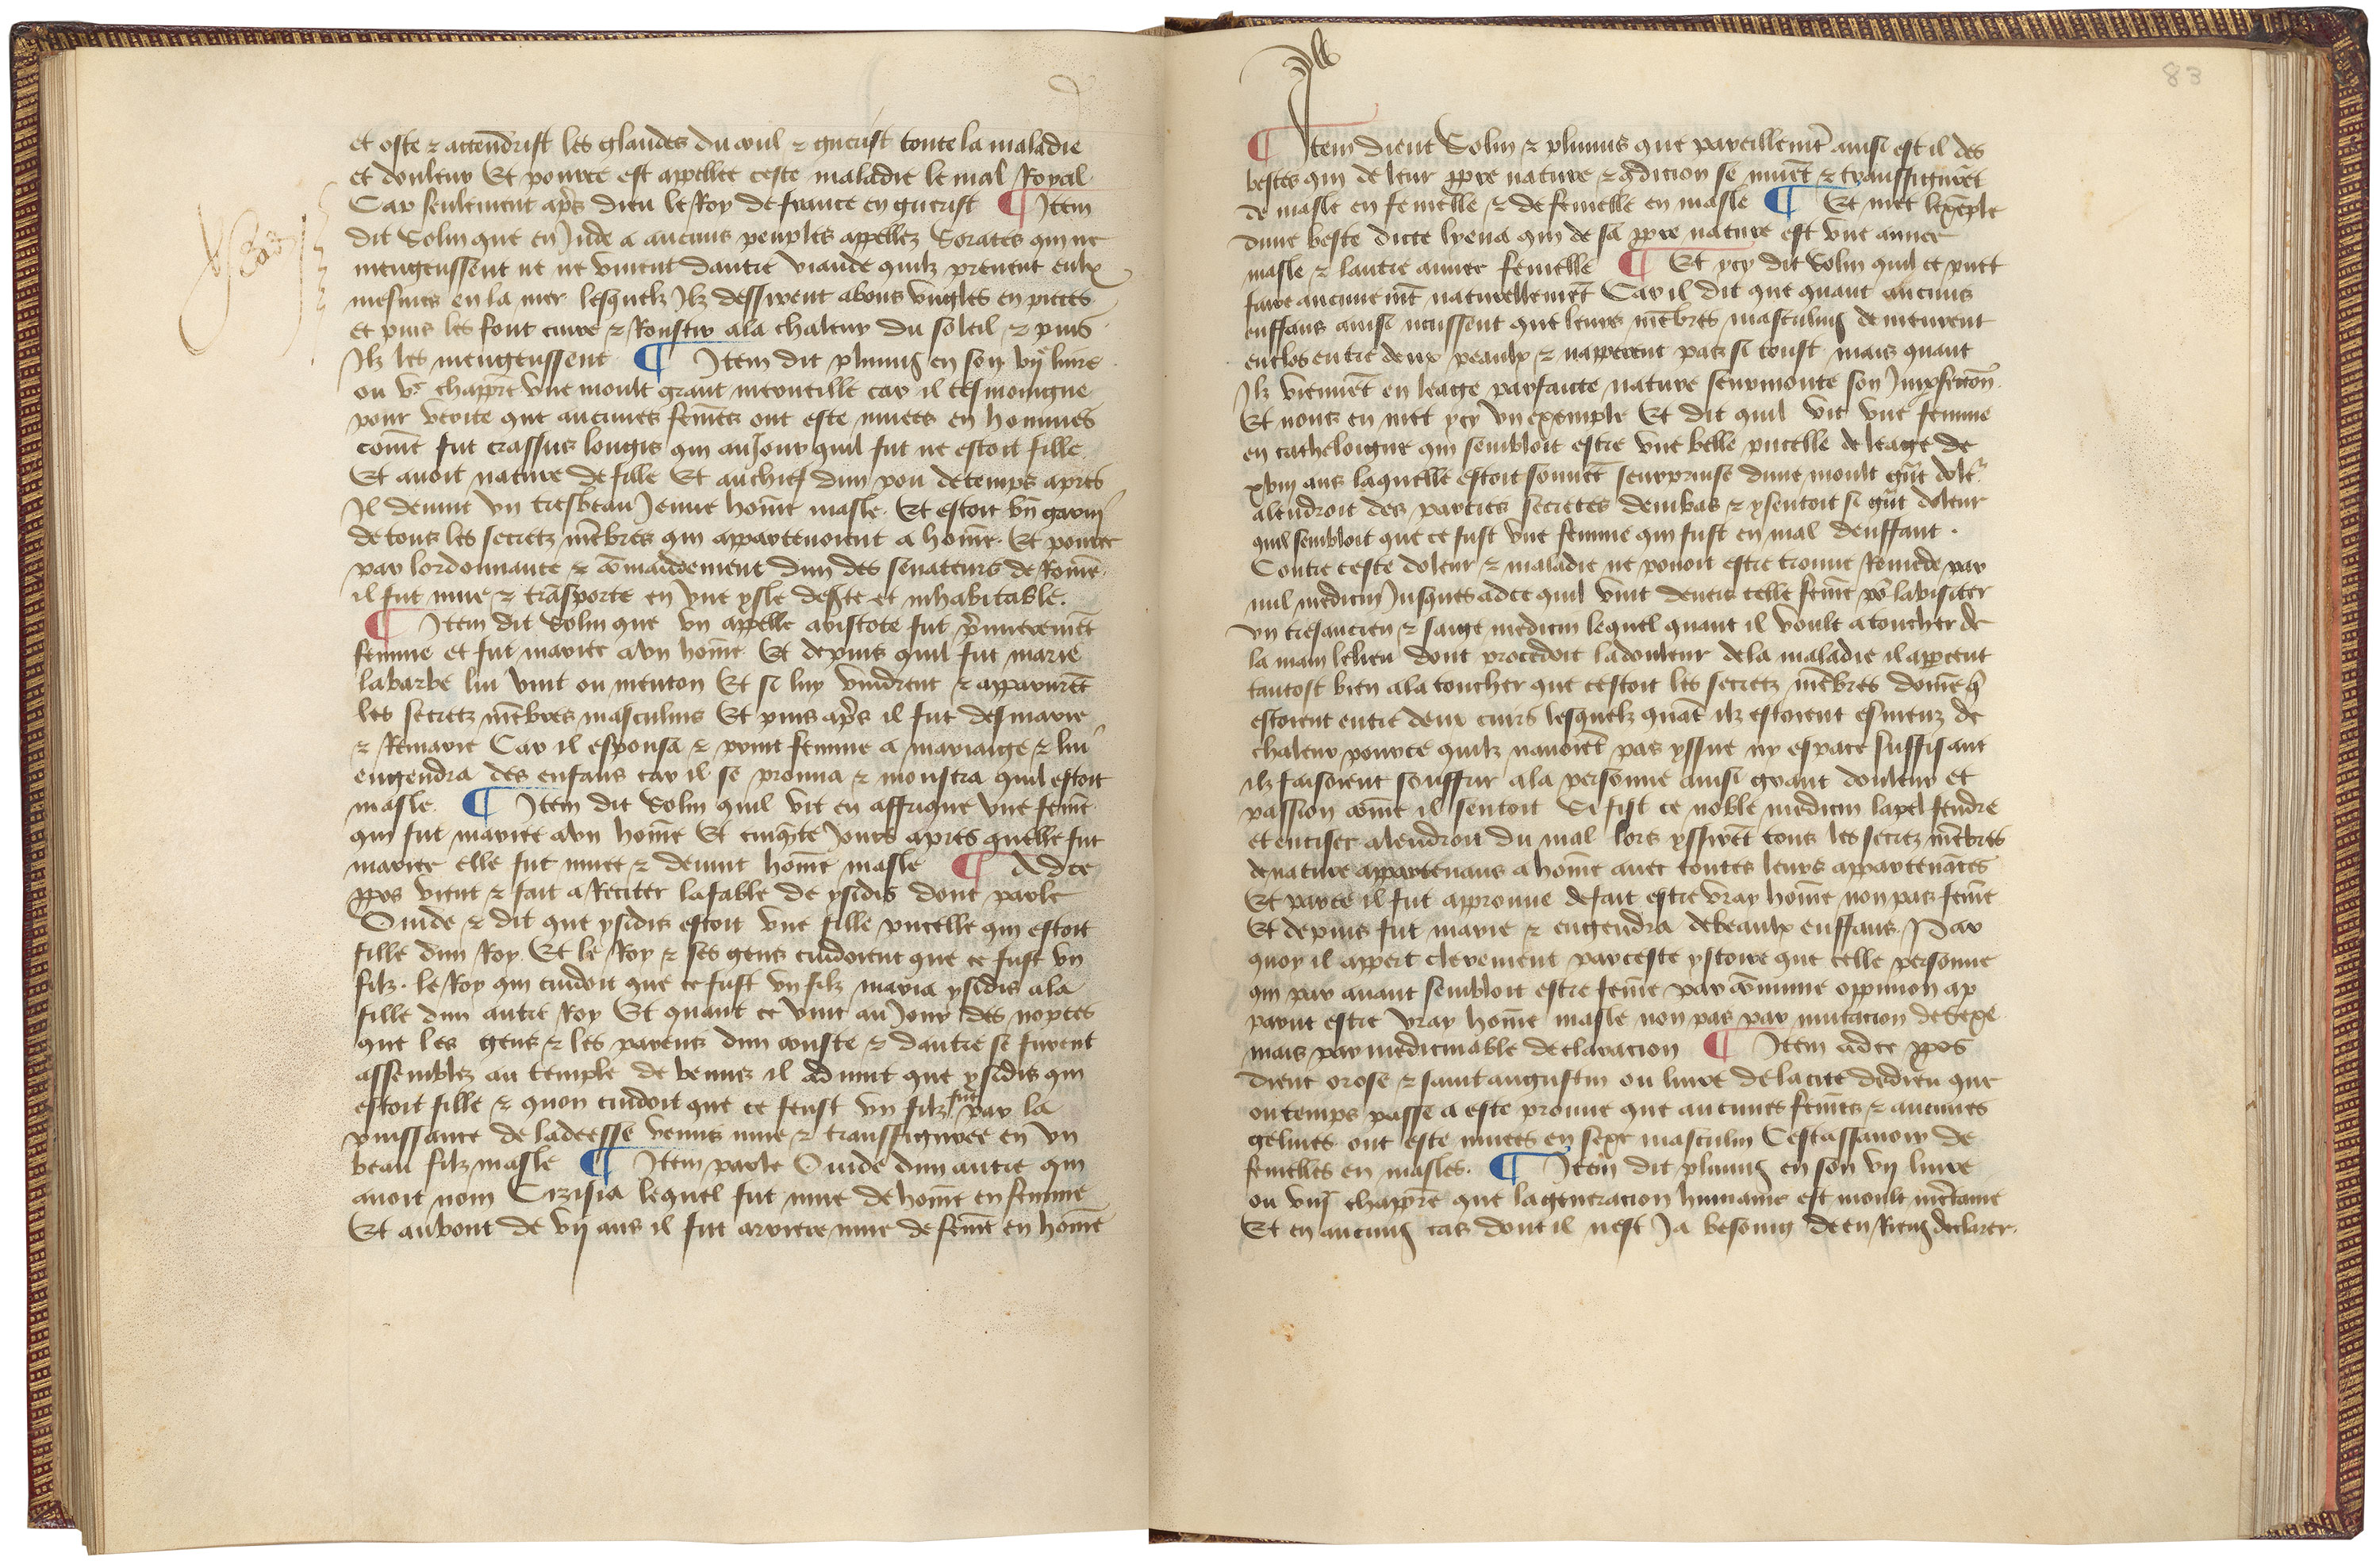 et oste ⁊ attendrist les glandes du coul ⁊ guerist toute la maladie
et douleur Et pource est appellee ceste maladie le mal Royal
Car seulement apꝭs dieu le Roy de france en guerist ¶ Item
dit Solin que en Inde a aucuns peuples appellez Sorates qui ne
mengeussent ne ne viuent dautre viande quilz prenent eulx
mesmes en la mer lesquelz Ilz dessirent abons vngles en pieces
et puis les font cuire ⁊ Roustir ala chaleur du soleil ⁊ puis
Ilz les mengeussent ¶ Item dit plinius en son vij liure
ou ve chappre vne moult grant merueille car il tesmoingne
pour verite que aucunes femes ont este muees en hommes
come fut crassus longis qui au Jour quil fut ne estoit fille
Et auoit nature de fille Et au chief dun pou de temps apres
Il deuint vn tresbeau Jenne home masle. Et estoit bn garni
de tous les secretz mebres qui appartenoient a home. Et pource
par lordonnance ⁊ comaindement dun des senateurs de Rome
il fut mue ⁊ trasporte en vne ysle desṛte et inhabitable.
¶ Item dit Solin que vn apelle aristote fut pmieremet
femme et fut mariee avn home Et depuis quil fut marie
labarbe lui vint ou menton Et si luy vindrent ⁊ apparuret
les secretz mebres masculins Et puis apꝭs il fut desmarie
⁊ Remarie Car il espousa ⁊ print femme a mariaige ⁊ lui
engendra des enfans car il se prouua ⁊ monstra quil estoit
masle. ¶ Item dit Solin quil vit en affrique vne feme
qui fut mariee avn home Et cinqte Jours apres quelle fut
mariee elle fut muee ⁊ deuint home masle ¶ Adce
ppos vient ⁊ fait a Reciter la fable de ysidis dont parle
Ouide ⁊ dit que ysidis estoit vne fille pucelle qui estoit
fille dun Roy. Et le Roy ⁊ ses gens cuidoient que ce fust vn
filz. le Roy qui cuidoit que ce fust vn filz maria ysidis ala
fille dun autre Roy Et quant ce vint au Jour des nopces
que les gens ⁊ les parens dun couste ⁊ dautre se furent
assemblez au temple de venus il aduint que ysidis qui
estoit fille ⁊ quon cuidoit que ce feust vn filz fut par la
puissance de ladeesse venus mue ⁊ transfiguree en vn
beau filz masle ¶ Item parle Ouide dun autre qui
auoit nom Cizisia lequel fut mue de home en femme
Et aubout de vij ans il fut arriere mue de feme en home
83
¶ Item dient Solin ⁊ plinius que pareillemet ainsi est il des
bestes qui de leur ppre nature ⁊ gdicion se muet ⁊ transfiguret
de masle en femelle ⁊ de femelle en masle ¶ Et met lexeple
dune beste dicte hyena qui de sa ppre nature est vne annee
masle ⁊ lautre annee femelle ¶ Et ycy dit Solin quil ce puet
faire aucunemt naturellemet Car il dit que quant aucuns
enffans ainsi neussent que leurs mebres masculins demeurent
enclos entre deux peaulx ⁊ napperent pas si toust mais quant
Ilz vienet en leage parfaicte nature seurmonte son Impfection
Et nous en met ycy vn exemple Et dit quil vit vne femme
en cathelongne qui sembloit estre vne belle pucelle de leage de
xviij ans laquelle estoit souuet seurprinse dune moult gnt dolr
alendroit des parties secretes dembas ⁊ ysentoit si gnt doleur
quil sembloit que ce fust vne femme qui fust en mal denffant.
Contre ceste doleur ⁊ maladie ne pouoit estre trouue Remede par
nul medicin Jusques adce quil vint deuers celle feme pr la visiter
vn tresancien ⁊ saige medicin lequel quant il voult atoucher de
la main le lieu dont procedoit ladouleur dela maladie il appceut
tantost bien ala toucher que cestoit les secretz mebres dome q
estoient entre deux cuirs lesquelz quat ilz estoient esmeuz de
chaleur pource quilz nauoiet pas yssue ny espace suffisant
ilz faisoient souffrir ala personne ainsi grant douleur et
passion come il sentoit Si fist ce noble medicin lapel fendre
et enciser alendroit du mal lors yssiret tous les secrez mebres
de nature appartenans a home auec toutes leurs appartenaces
Et parce il fut approuue de fait estre vray home non pas feme
Et depuis fut marie ⁊ engendra de beaulx enffans. Par
quoy il appert clerement par ceste ystoire que celle personne
qui par auant sembloit estre feme par comune oppinion ap
parut estre vray home masle non pas par mutacion de sexe
mais par medicinable declaracion ¶ Item adce ppos
dient orose ⁊ saint augustin ou liure de la cite de dieu que
ou temps passe a este prouue que aucunes femes ⁊ aucunes
gelines ont este muees en sexe masculin Cestassauoir de
femelles en masles. ¶ Item dit plinius en son vij liure
ou viije chappre que la generacion humaine est moult incertaine
Et en aucuns cas dont il nest Ja besoing de en Riens declarer.